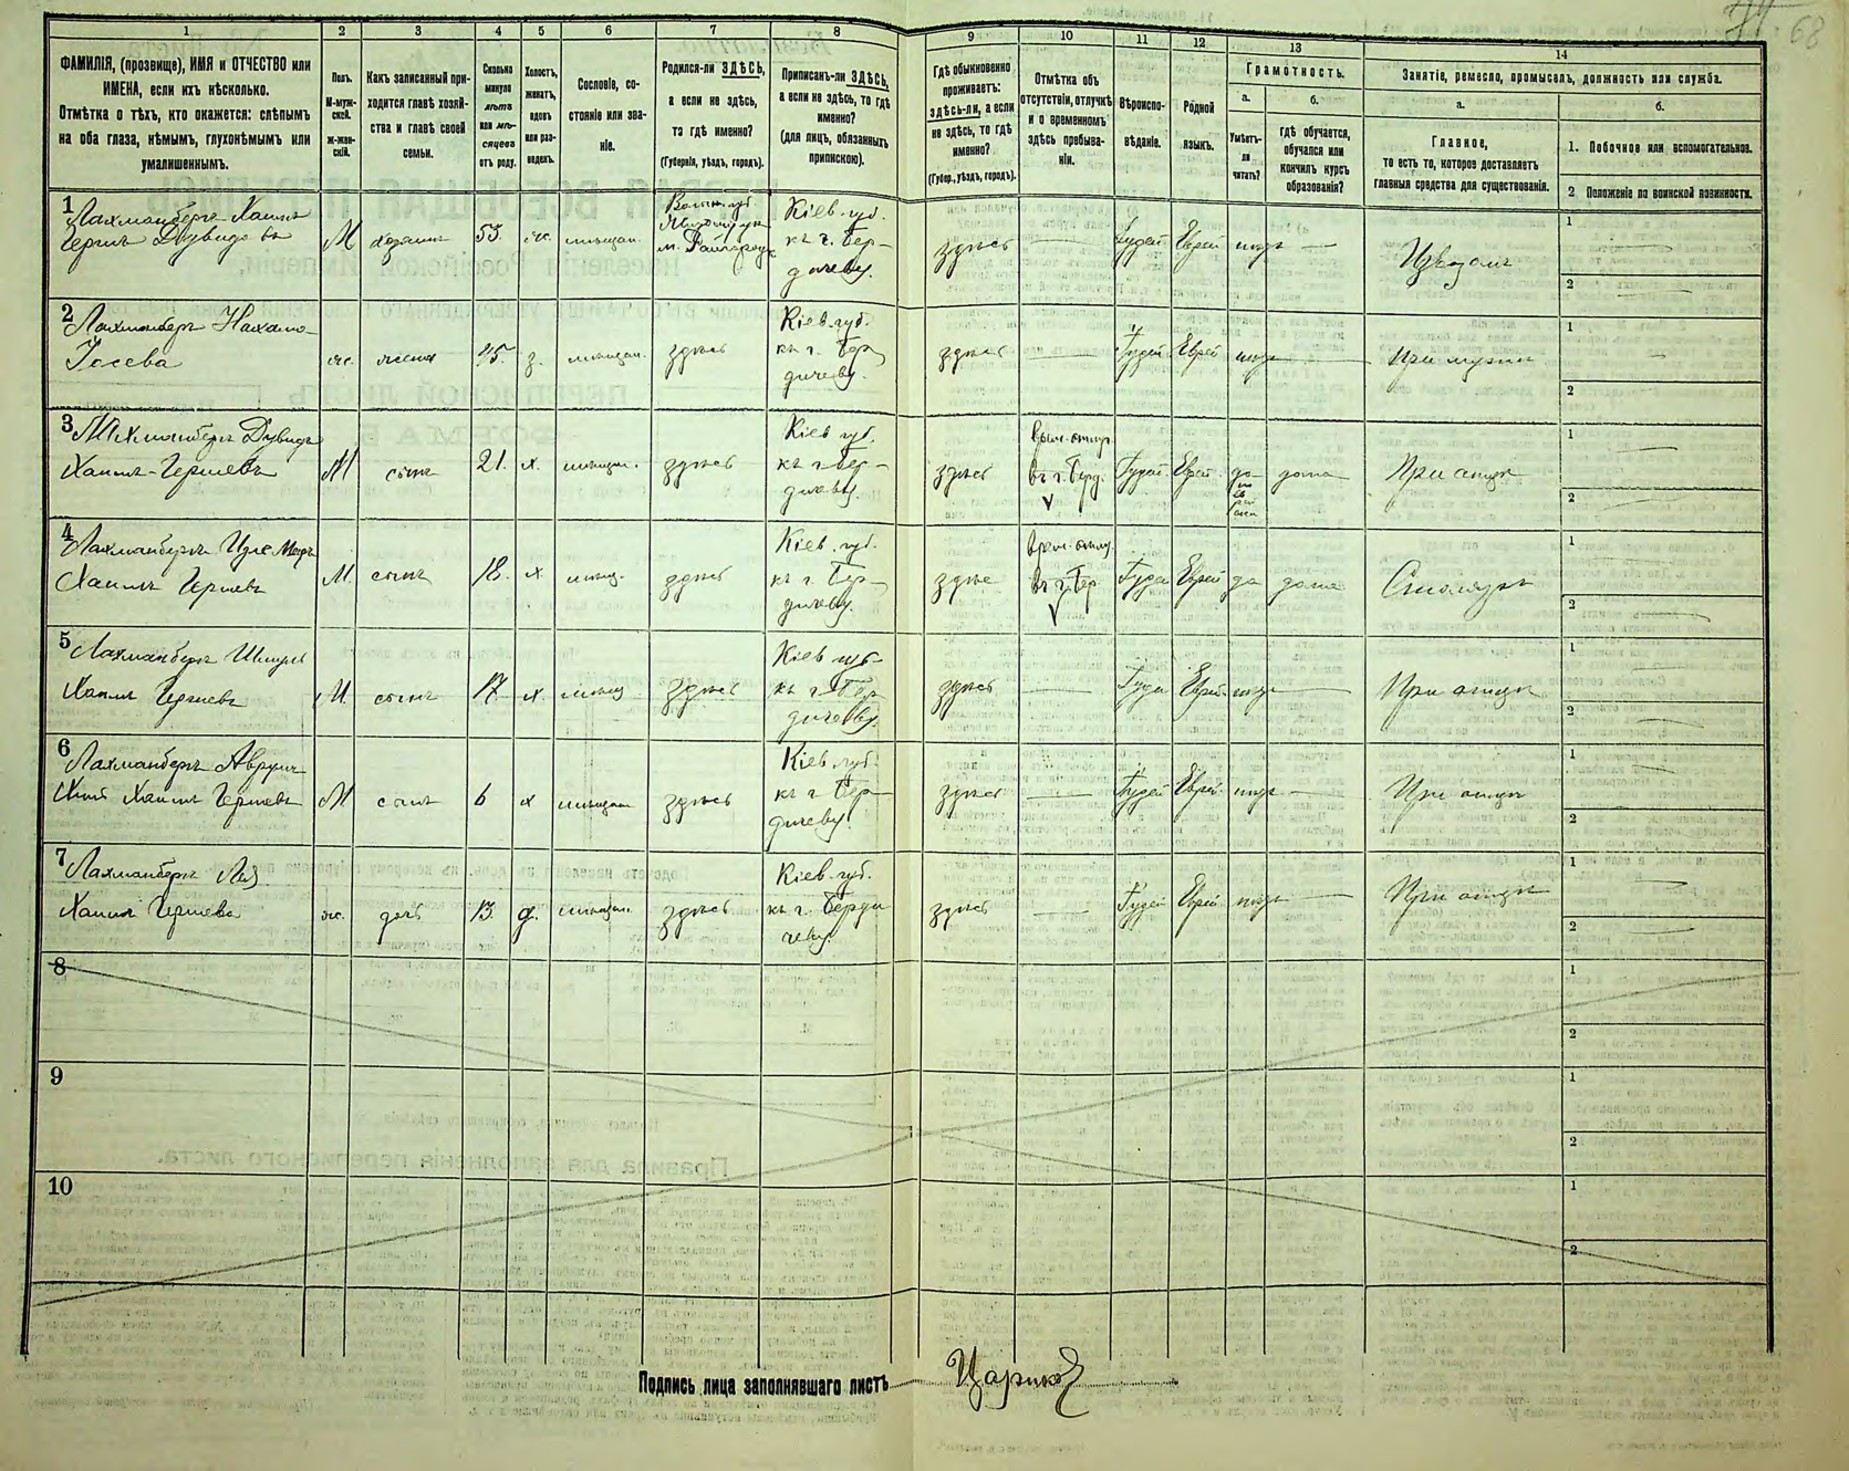 68
1 2 3 4 5 6 7 8 9 10 11 12 13 14
ФАМИЛІЯ, (прозвище), ИМЯ и ОТЧЕСТВО или
ИМЕНА, если ихъ нѣсколько.
Отмѣтка о тѣхъ, кто окажется: слѣпымъ
на оба глаза, нѣмымъ, глухонѣмымъ или
умалишеннымъ.
Полъ.
М-муж-
ской.
ж-жен-
скій.
Какъ записанный при-
ходится главѣ хозяй-
ства и главѣ своей
семьи.
Сколько
минуло
лѣтъ
или мѣ-
сяцевъ
отъ роду.
Холостъ,
женатъ,
вдовъ
или раз-
веденъ.
Сословіе, со-
стояніе или зва-
ніе.
Родился-ли ЗДѢСЬ,
а если не здѣсь,
то гдѣ именно?
(Губернія, уѣздъ, городъ).
Приписанъ-ли ЗДѢСЬ,
а если не здѣсь, то гдѣ
именно?
(для лицъ, обязанныхъ
припискою).
Гдѣ обыкновенно
проживаетъ:
здѣсь-ли, а если
не здѣсь, то гдѣ
именно?
(Губер., уѣздъ, городъ).
Отмѣтка объ
отсутствіи, отлучкѣ
и о временномъ
здѣсь пребыва-
ніи.
Вѣроиспо-
вѣданіе.
Родной
языкъ.
Грамотность.
а.
Умѣетъ-
ли
читать?
б.
гдѣ обучается,
обучался или
кончилъ курсъ
образованія?
Занятіе, ремесло, промыселъ, должность или служба.
а.
Главное,
то есть то, которое доставляетъ
главныя средства для существованія.
б.
1. Побочное или вспомогательное.
2 Положеніе по воинской повинности.
1
Лахманберъ Хаимъ
Гершъ Дувидовъ
М хозяинъ 53. ж. мѣщан.
Кіев. губ.
къ г. Бер-
дичеву.
здѣсь — Іудей Еврей нѣтъ — Извозъ
1
2
2
Лахманберъ Нахама
Іосева
ж. жена 45. з. мѣщан. здѣсь
Кіев. губ.
къ г. Бер
дичеву.
здѣсь — Іудей Еврей нѣтъ — При мужѣ
1
2
3
Дувидъ
Хаимъ-Гершевъ
М сынъ 21. х. мѣщан. здѣсь
Кіев губ.
къ г. Бер-
дичеву.
здѣсь
въ г. Берд.
Іудей Еврей да дома При отцѣ
1
2
4
Лахманберъ
Хаимъ Гершевъ
М. сынъ 18. х. мѣщ. здѣсь
Кіев. губ.
къ г. Бер
дичеву.
здѣсь
въ г. Бер
Іудей Еврей да дома Столяръ
1
2
5
Лахманберъ Шмуль
Хаимъ Гершевъ
М. сынъ 17. х. мѣщ здѣсь
Кіев губ.
къ г. Бер
дичеву.
здѣсь — Іудей Еврей нѣтъ — При отцѣ
1
2
6
Лахманберъ Аврумъ
Хаимъ Гершевъ
М сынъ 6 х мѣщан здѣсь
Кіев. губ.
къ г Бер
дичеву.
здѣсь — Іудей Еврей нѣтъ — При отцѣ
1
2
7
Лахманберъ Лея
Хаимъ Гершева
ж. дочь 13. д. мѣщан. здѣсь
Кіев. губ.
къ г. Берди
чеву.
здѣсь — Іудей Еврей нѣтъ — При отцѣ
1
2
8
1
2
9
1
2
10
1
2
Подпись лица заполнявшаго листъ